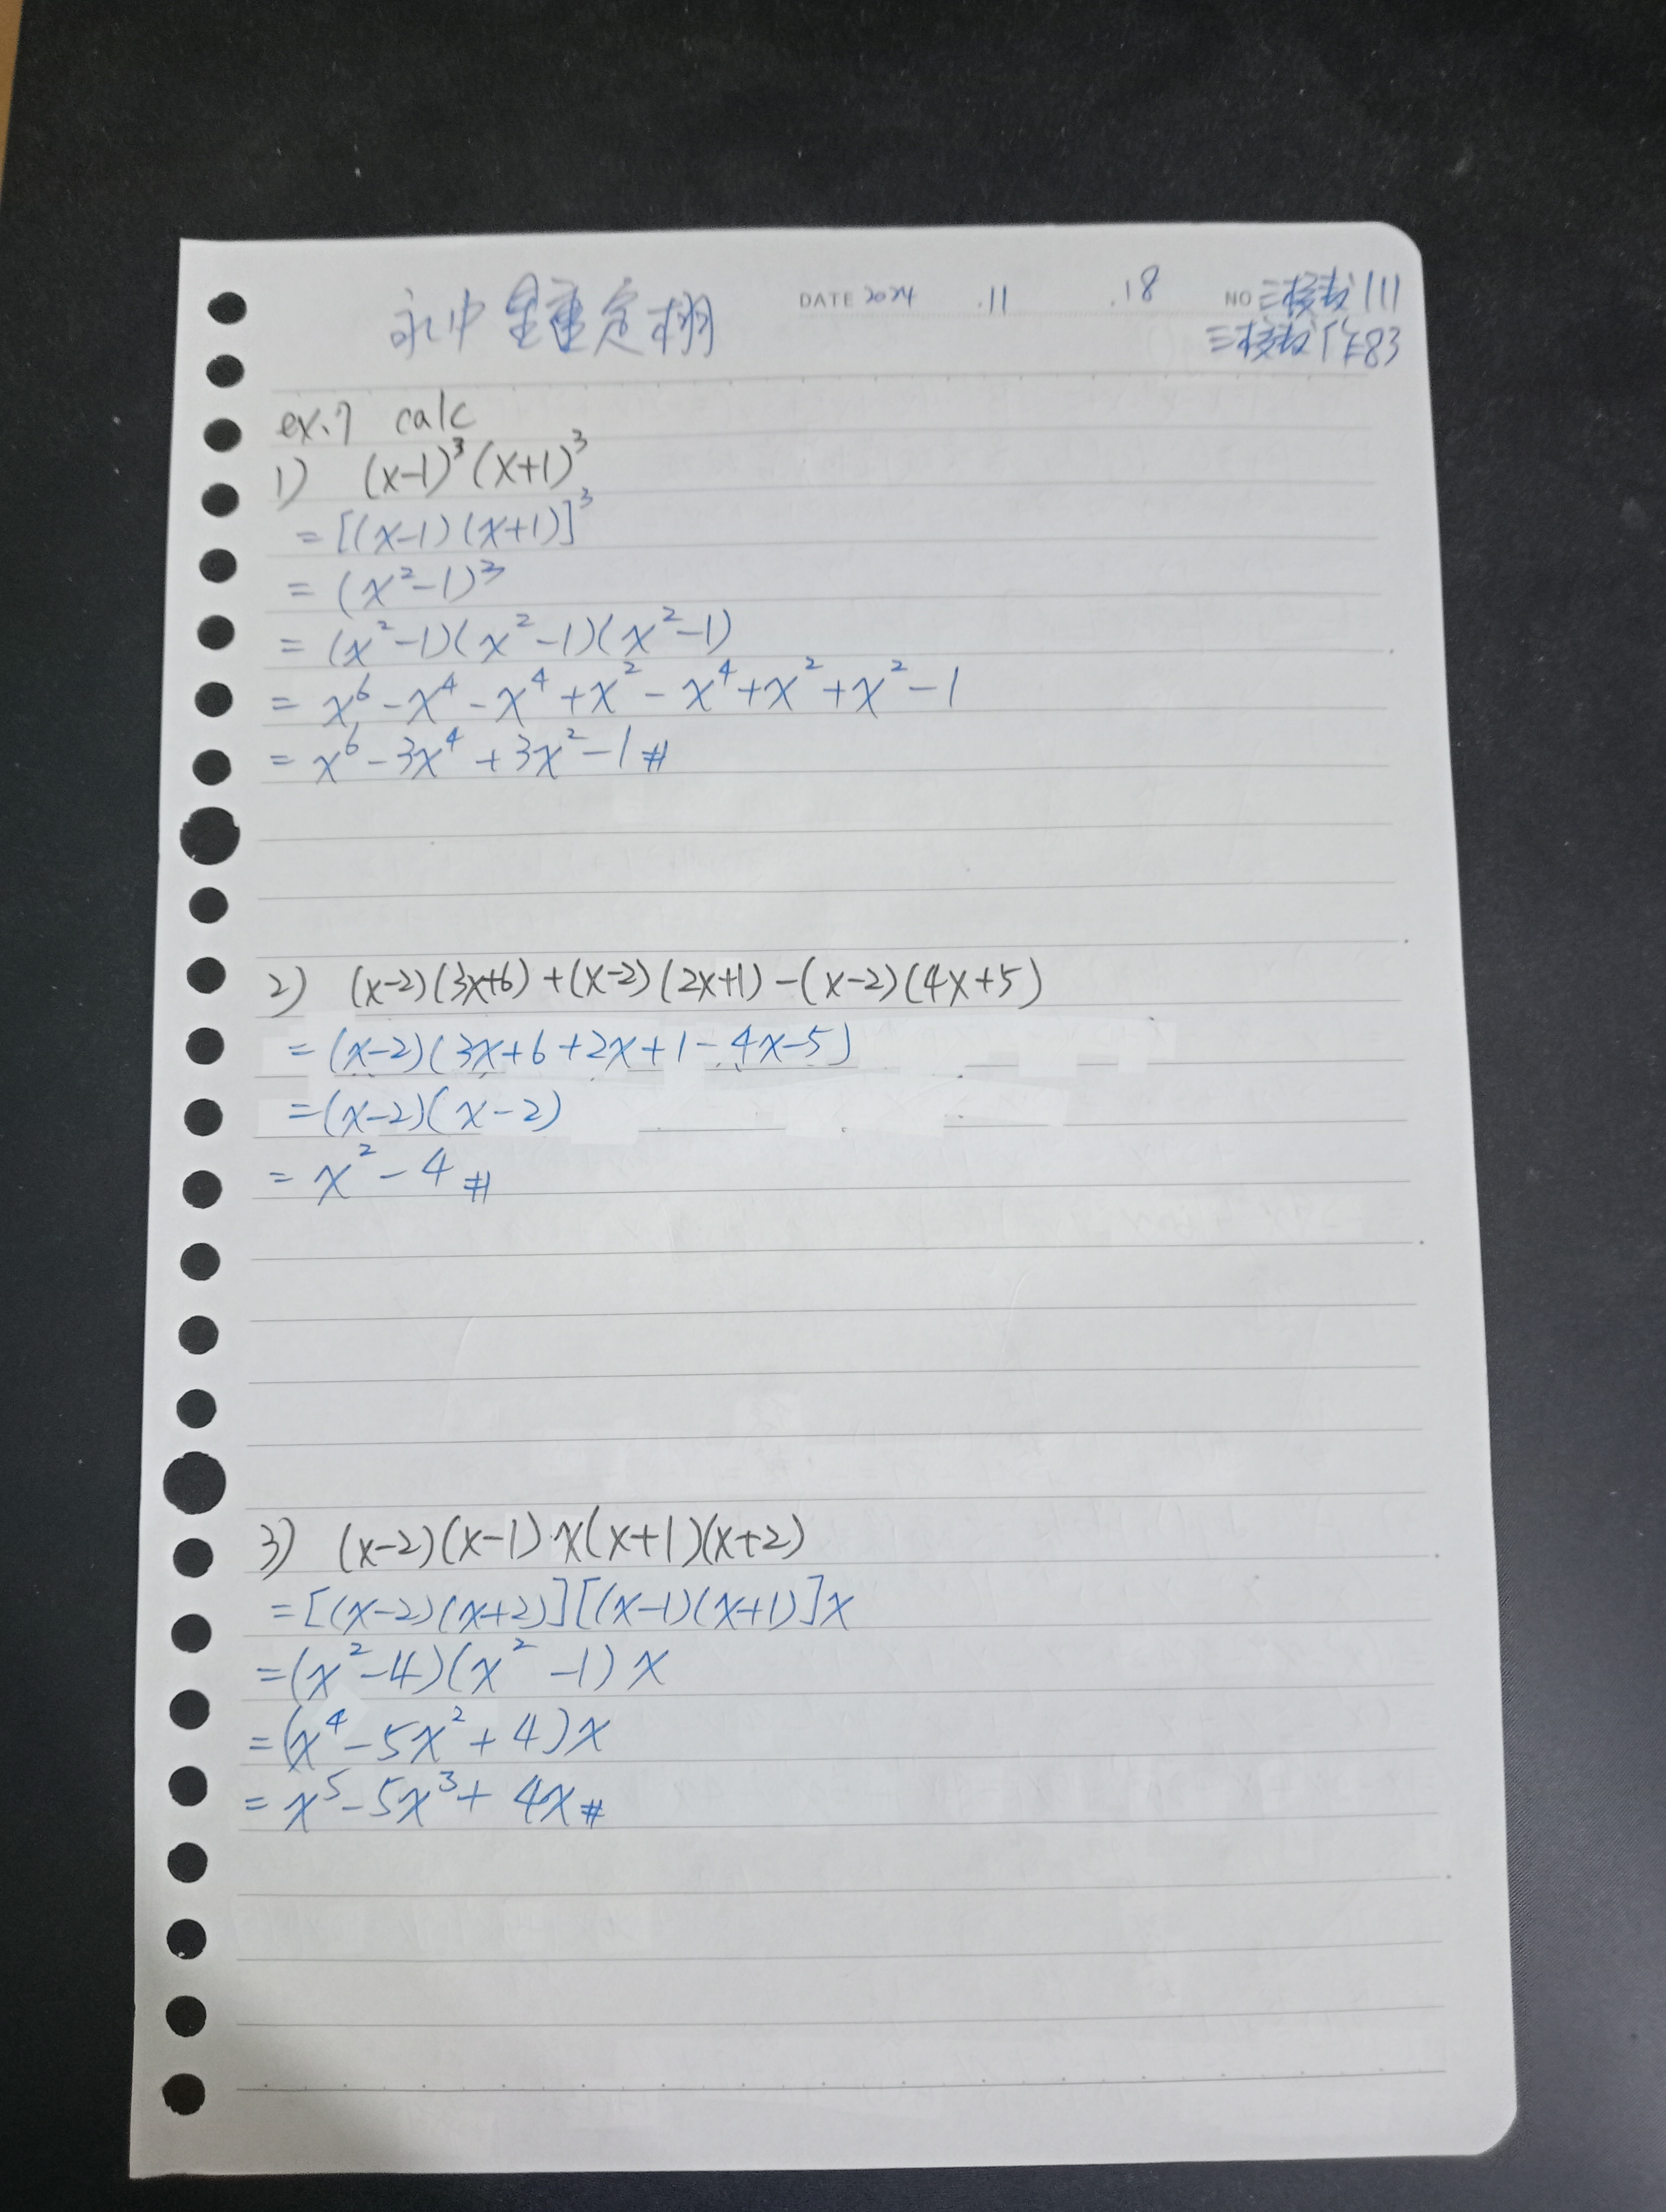 永中 鍾定栩 DATE 2024 .11 .18 NO 三模考 111
三模考 作83
ex.7 calc
1) (x-1)³(x+1)³
= [(x-1)(x+1)]³
= (x²-1)³
= (x²-1)(x²-1)(x²-1)
= x⁶-x⁴-x⁴+x²-x⁴+x²+x²-1
= x⁶-3x⁴+3x²-1#
2) (x-2)(3x+6)+(x-2)(2x+1)-(x-2)(4x+5)
= (x-2)(3x+6+2x+1-4x-5)
=(x-2)(x-2)
= x²-4#
3) (x-2)(x-1)·x(x+1)(x+2)
= [(x-2)(x+2)][(x-1)(x+1)]x
=(x²-4)(x²-1)x
=(x⁴-5x²+4)x
= x⁵-5x³+4x#